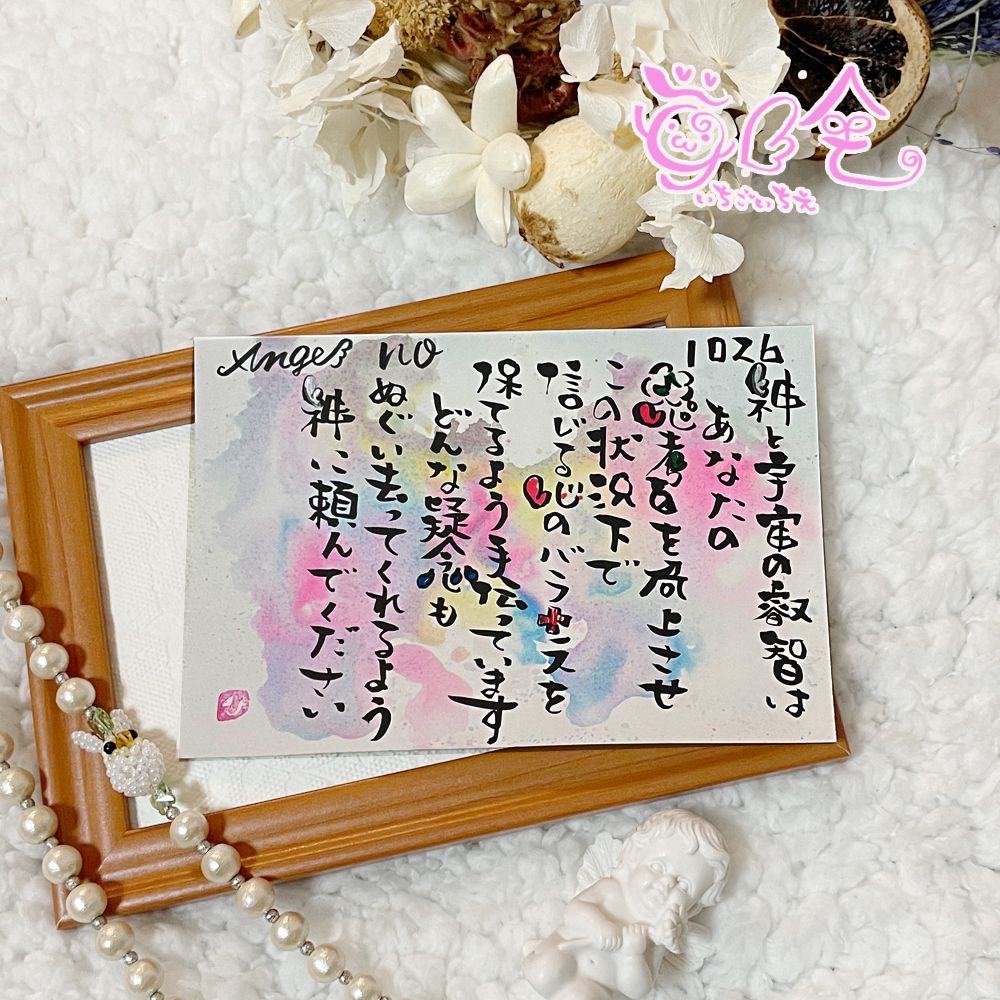 いちごいちえ
Angel no 1026
神と宇宙の叡智は
あなたの
思考を向上させ
この状況下で
信じる心のバランスを
保てるよう手伝っています
どんな疑念も
ぬぐい去ってくれるよう
神に頼んでください